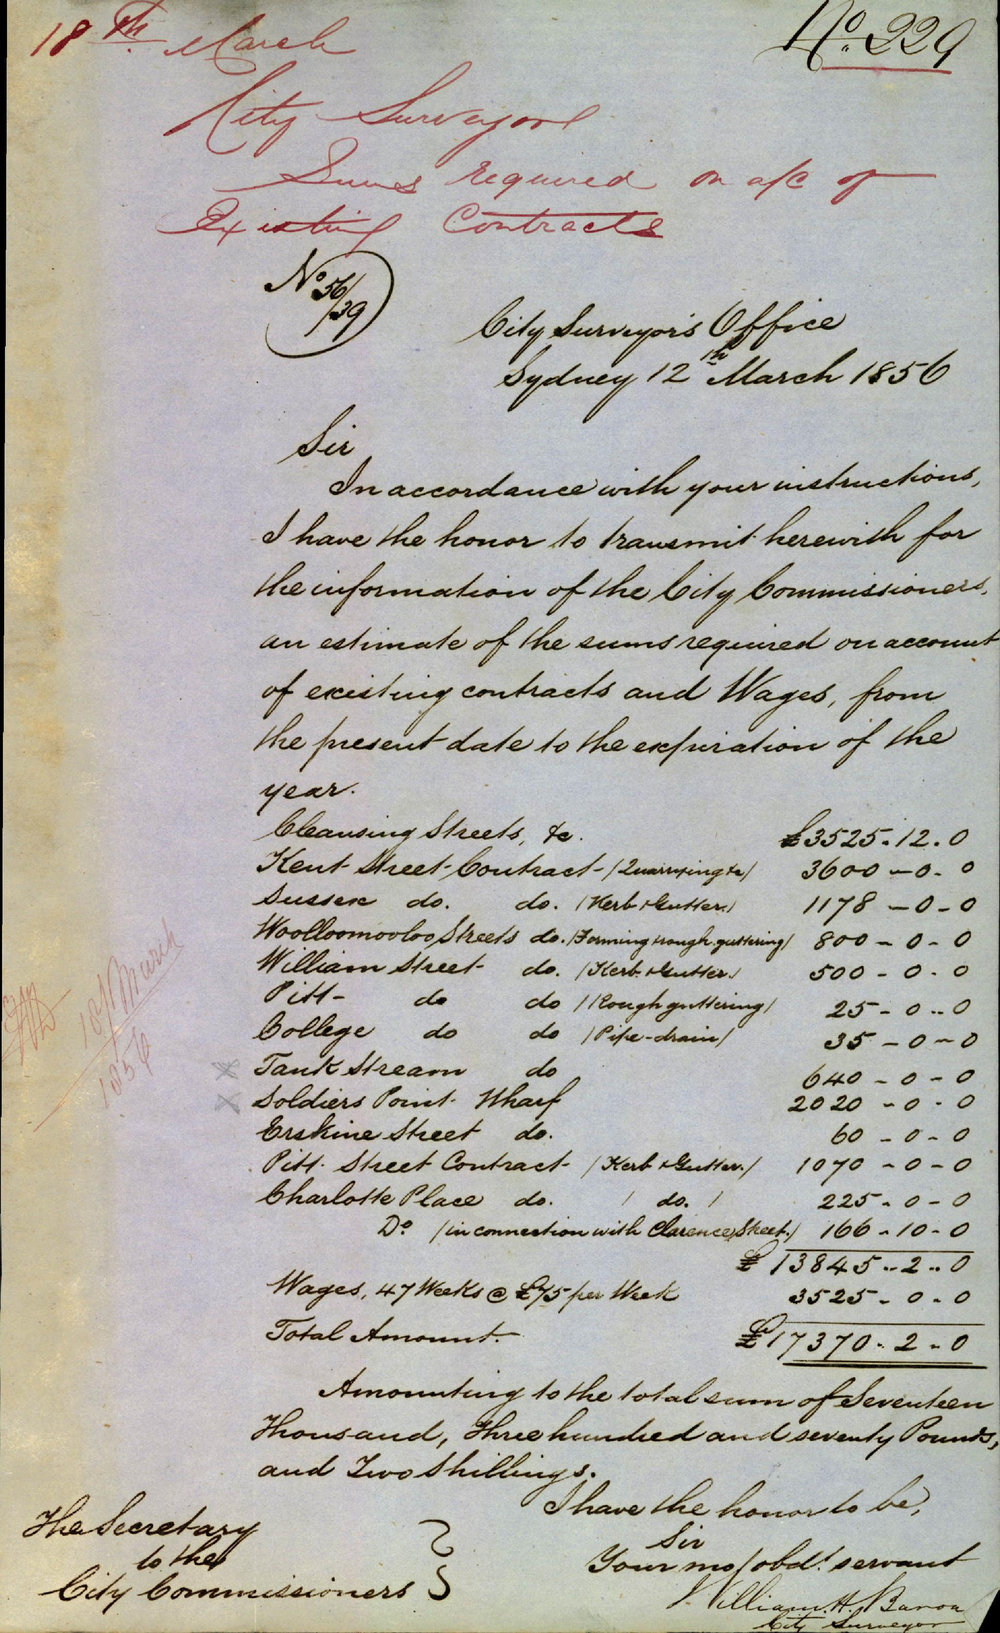 18th March
No. 229
City Surveyor
Sums required on a/c of
Existing Contracts
No 56/39
City Surveyor's Office
Sydney 12th March 1856
Sir
In accordance with your instructions,
I have the honor to transmit herewith for
the information of the City Commissioners,
an estimate of the sums required on account
of existing contracts and Wages, from
the present date to the expiration of the
year.
Cleansing Streets, &c. £3525.12.0
Kent Street Contract /Quarrying &c/ 3600-0-0
Sussex do. do. /Kerb & Gutter./ 1178-0-0
Woolloomooloo Streets do. /Forming rough guttering/ 800-0-0
William Street do. /Kerb & Gutter./ 500-0-0
Pitt do do /Rough guttering/ 25-0-0
College do do /Pipe-drain/ 35-0-0
10/March
1856
x Tank Stream do 640-0-0
x Soldiers Point Wharf 2020-0-0
Erskine Street do. 60-0-0
Pitt Street Contract /Kerb & Gutter./ 1070-0-0
Charlotte Place do. / do. / 225-0-0
Do. /in connection with Clarence Street./ 166-10-0
£13845-2-0
Wages, 47 Weeks @ £75 per Week 3525-0-0
Total Amount. £17370-2-0
Amounting to the total sum of Seventeen
Thousand, Three hundred and seventy Pounds,
and Two Shillings.
I have the honor to be,
Sir
Your mo/obdt. servant
William H. Baron
City Surveyor
The Secretary
to the
City Commissioners